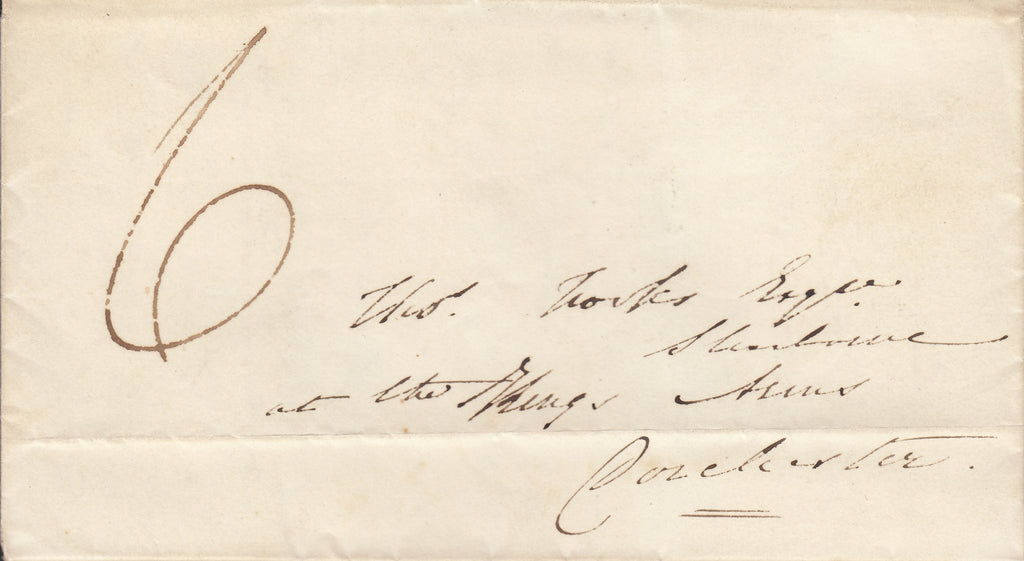 6
Thos. Fooks Esqre.
Sherborne
at the Kings Arms
Dorchester.